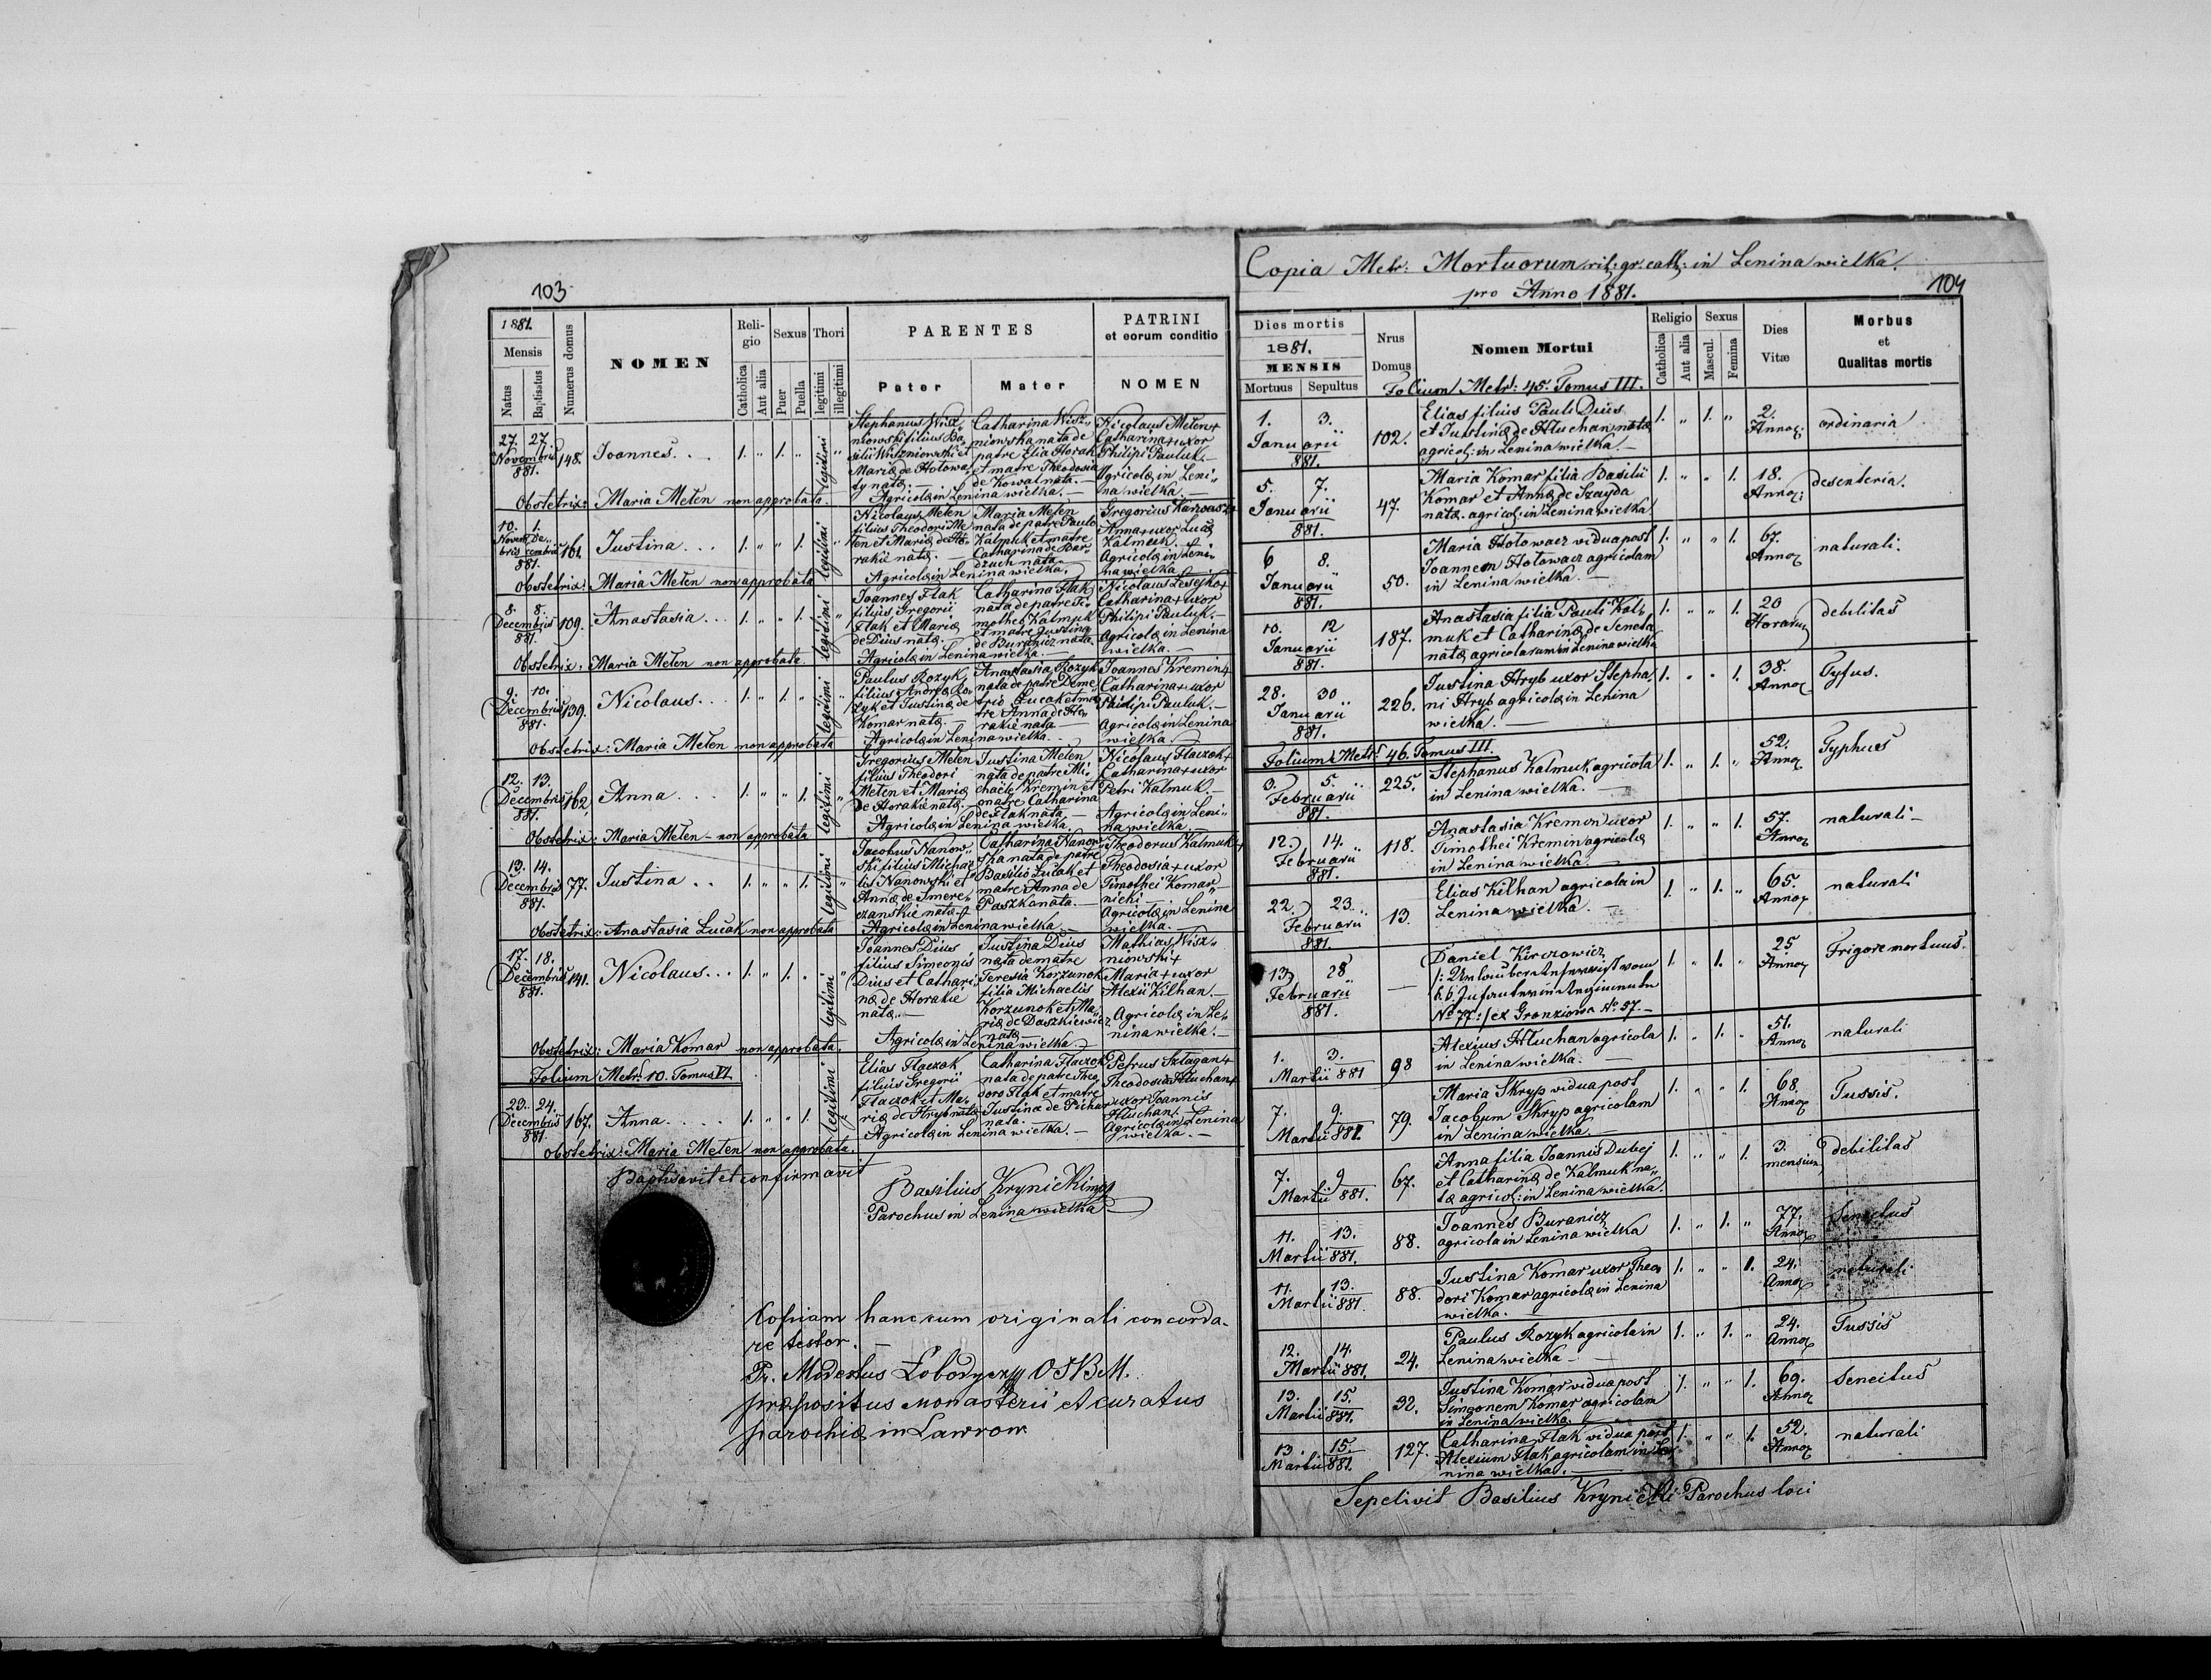 103
1881.
Mensis
Natus
Baptisatus
Numerus domus
NOMEN
Religio
Catholica
Aut alia
Sexus
Puer
Puella
Thori
legitimi
illegitimi
PARENTES
Pater
Mater
PATRINI
et eorum conditio
NOMEN
27. 27. Novembris 881.
148.
Joannes. . .
1. „ 1. „ legitimi „
Stephanus Wisz„
niowski filius Ba„
silii Wiszniowski et
Mariæ de Hotowa„
ty natæ. —
Catharina Wisz„
niowska nata de
patre Elia Horak
et matre Theodosia
de Kowal nata. —
Agricolæ in Lenina wielka. —
Nicolaus Meten +
Catharina + uxor
Philipi Pauluk. —
Agricolæ in Leni„
na wielka. —
Obstetrix: Maria Meten non approbata.
10. Novembris 1. Decembris 881.
161.
Justina . . .
1. „ „ 1. legitimi „
Nicolaus Meten
filius Theodori Me„
ten et Mariæ de Ho„
rakie natæ. —
Maria Meten
nata de patre Paulo
Kalmuk et matre
Catharina de Bar„
dzuch nata
Agricolæ in Lenina wielka.
Gregorius Karwasz +
Anna + uxor Lucæ
Kalmuk. —
Agricolæ in Leni„
na wielka
Obstetrix: Maria Meten non approbata
8. 8. Decembris 881.
109.
Anastasia . . .
1. „ „ 1. legitimi „
Joannes Flak
filius Gregorii
Flak et Mariæ
de Dius natæ. —
Catharina Flak
nata de patre Ti„
motheo Kalmuk
et matre Justina
de Buranicz nata
Agricolæ in Lenina wielka. —
Nicolaus Lesejko +
Catharina + uxor
Philipi Pauluk. —
Agricolæ in Lenina
wielka. —
Obstetrix: Maria Meten non approbata
9. 10. Decembris 881.
139.
Nicolaus . . .
1. „ 1. „ legitimi „
Paulus Rozyk
filius Andreæ Ro„
zyk et Justinæ de
Komar natæ. —
Anastasia Rozyk
nata de patre Deme
trio Lucak et ma
tre Anna de Ho„
rakie nata
Agricolæ in Lenina wielka.
Joannes Kremin +
Catharina + uxor
Philipi Pauluk. —
Agricolæ in Lenina
wielka
Obstetrix: Maria Meten non approbata
12. 13. Decembris 881.
162.
Anna . . .
1. „ „ 1. legitimi „
Gregorius Meten
filius Theodori
Meten et Mariæ
de Horakie natæ. —
Justina Meten
nata de patre Mi„
chaele Kremin et
matre Catharina
de Flak nata —
Agricolæ in Lenina wielka. —
Nicolaus Flaczok +
Catharina + uxor
Petri Kalmuk. —
Agricolæ in Leni„
na wielka. —
Obstetrix: Maria Meten - non approbata
13. 14. Decembris 881.
77.
Justina . .
1. „ „ 1. legitimi „
Jacobus Nanow„
ski filius Michae
lis Nanowski et
Annæ de Smere„
czanskie natæ. —
Catharina Nanow
ska nata de patre
Basilio Lucak et
matre Anna de
Paszko nata. —
Agricolæ in Lenina wielka —
Theodorus Kalmuk +
Theodosia + uxor
Timothei Komar„
nicki
Agricolæ in Lenina
wielka. —
Obstetrix: Anastasia Lucak non approbata
17. 18. Decembris 881.
141.
Nicolaus. . .
1. „ 1. „ legitimi „
Joannes Dius
filius Simeonis
Dius et Cathari„
næ de Horakie
natæ. —
Justina Dius
nata de matre
Teresia Korzunok
filia Michaelis
Korzunok et Ma„
riæ de Daszkiewicz
nata
Agricolæ in Lenina wielka —
Mathias Wisz„
niowski +
Maria + uxor
Alexii Kilhan. —
Agricolæ in Le„
nina wielka. —
Obstetrix: Maria Komar non approbata.
Folium Metr: 10. Tomus VI.
23. 24. Decembris 881.
167.
Anna. . . . .
1. „ „ 1. legitimi „
Elias Flaczok
filius Gregorii
Flaczok et Ma„
riæ de Hryb natæ
Catharina Flaczok
nata de patre Theo„
doro Flak et matre
Justina de Pichur
nata.
Agricolæ in Lenina wielka. —
Petrus Sztagan +
Theodosia Hluchan +
uxor Joannis
Hluchan. —
Agricolæ in Lenina
wielka. —
Obstetrix: Maria Meten non approbata.
Baptisavit et confirmavit
Basilius Krynicki mp
Parochus in Lenina wielka —
Copiam hanc cum originali concorda-
re testor. —
Fr. Modestus Łobodycz mp OSBM.
præpositus monasterii et curatus
parochiæ in Lawrow
Copia Metr: Mortuorum rit: gr. cath: in Lenina wielka.
pro Anno 1881.
104
Dies mortis
1881.
MENSIS
Mortuus
Sepultus
Nrus
Domus
Nomen Mortui
Religio
Catholica
Aut alia
Sexus
Mascul.
Femina
Dies
Vitæ
Morbus
et
Qualitas mortis
Folium Metr: 45. Tomus III.
1. 3. Januarii 881.
102.
Elias filius Pauli Dius
et Justinæ de Hluchan natæ
agricol: in Lenina wielka. —
1. „ 1. „
2. Annor:
ordinaria
5. 7. Januarii 881.
47.
Maria Komar filia Basilii
Komar et Annæ de Szayda
natæ. agricol: in Lenina wielka
1. „ „ 1.
18. Annor:
desenteria.
6 8. Januarii 881.
50.
Maria Hotowacz vidua post
Joannem Hotowacz agricolam
in Lenina wielka. —
1. „ „ 1.
67. Annor
naturali.
10. 12 Januarii 881.
187.
Anastasia filia Pauli Kal„
muk et Catharinæ de Seneta
natæ agricolarum in Lenina wielka
1. „ „ 1.
20 Horarum
debilitas
28. 30 Januarii 881.
226.
Justina Hryb uxor Stepha
ni Hryb agricolæ in Lenina
wielka. —
1. „ „ 1.
38. Annor
Tyfus.
Folium Metr: 46. Tomus III.
3. 5. Februarii 881.
225.
Stephanus Kalmuk agricola
in Lenina wielka. —
1. „ 1. „
52. Annor
Typhus
12. 14. Februarii 881.
118.
Anastasia Kremin uxor
Timothei Kremin agricolæ
in Lenina wielka. —
1. „ „ 1.
57. Annor
naturali —
22. 23. Februarii 881.
13.
Elias Kilhan agricola in
Lenina wielka. —
1. „ 1. „
65. Annor
naturali
13. 28 Februarii 881.
—
Daniel Kirczowicz
No 77 :/ ex Gronziowa No. 57. —
1. „ 1. „
25 Annor
Frigore mortuus.
1. 3. Martii 881
98
Alexius Hluchan agricola
in Lenina wielka. —
1. „ 1. „
51. Annor
naturali
7. 9. Martii 881.
79.
Maria Skryp vidua post
Jacobum Skryp agricolam
in Lenina wielka. —
1. „ „ 1.
68. Annor
Tussis.
7. 9 Martii 881.
67.
Anna filia Joannis Dubej
et Catharinæ de Kalmuk na„
tæ agricol: in Lenina wielka.
1. „ „ 1.
3. mensium
debilitas
11. 13. Martii 881.
88.
Joannes Buranicz
agricola in Lenina wielka
1. „ 1. „
77. Annor
Senectus
11. 13. Martii 881.
88.
Justina Komar uxor Theo
dori Komar agricolæ in Lenina
wielka. —
1. „ „ 1.
24. Annor
naturali
12. 14. Martii 881.
24.
Paulus Rozyk agricola in
Lenina wielka —
1. „ 1. „
24. Annor
Tussis
13. 15. Martii 881.
32.
Justina Komar vidua post
Simeonem Komar agricolam
in Lenina wielka.
1. „ „ 1.
69. Annor
Senectus
13. 15. Martii 881.
127.
Catharina Flak vidua post
Alexium Flak agricolam in Le„
nina wielka. —
1. „ „ 1.
52. Annor
naturali
Sepelivit Basilius Krynicki Parochus loci